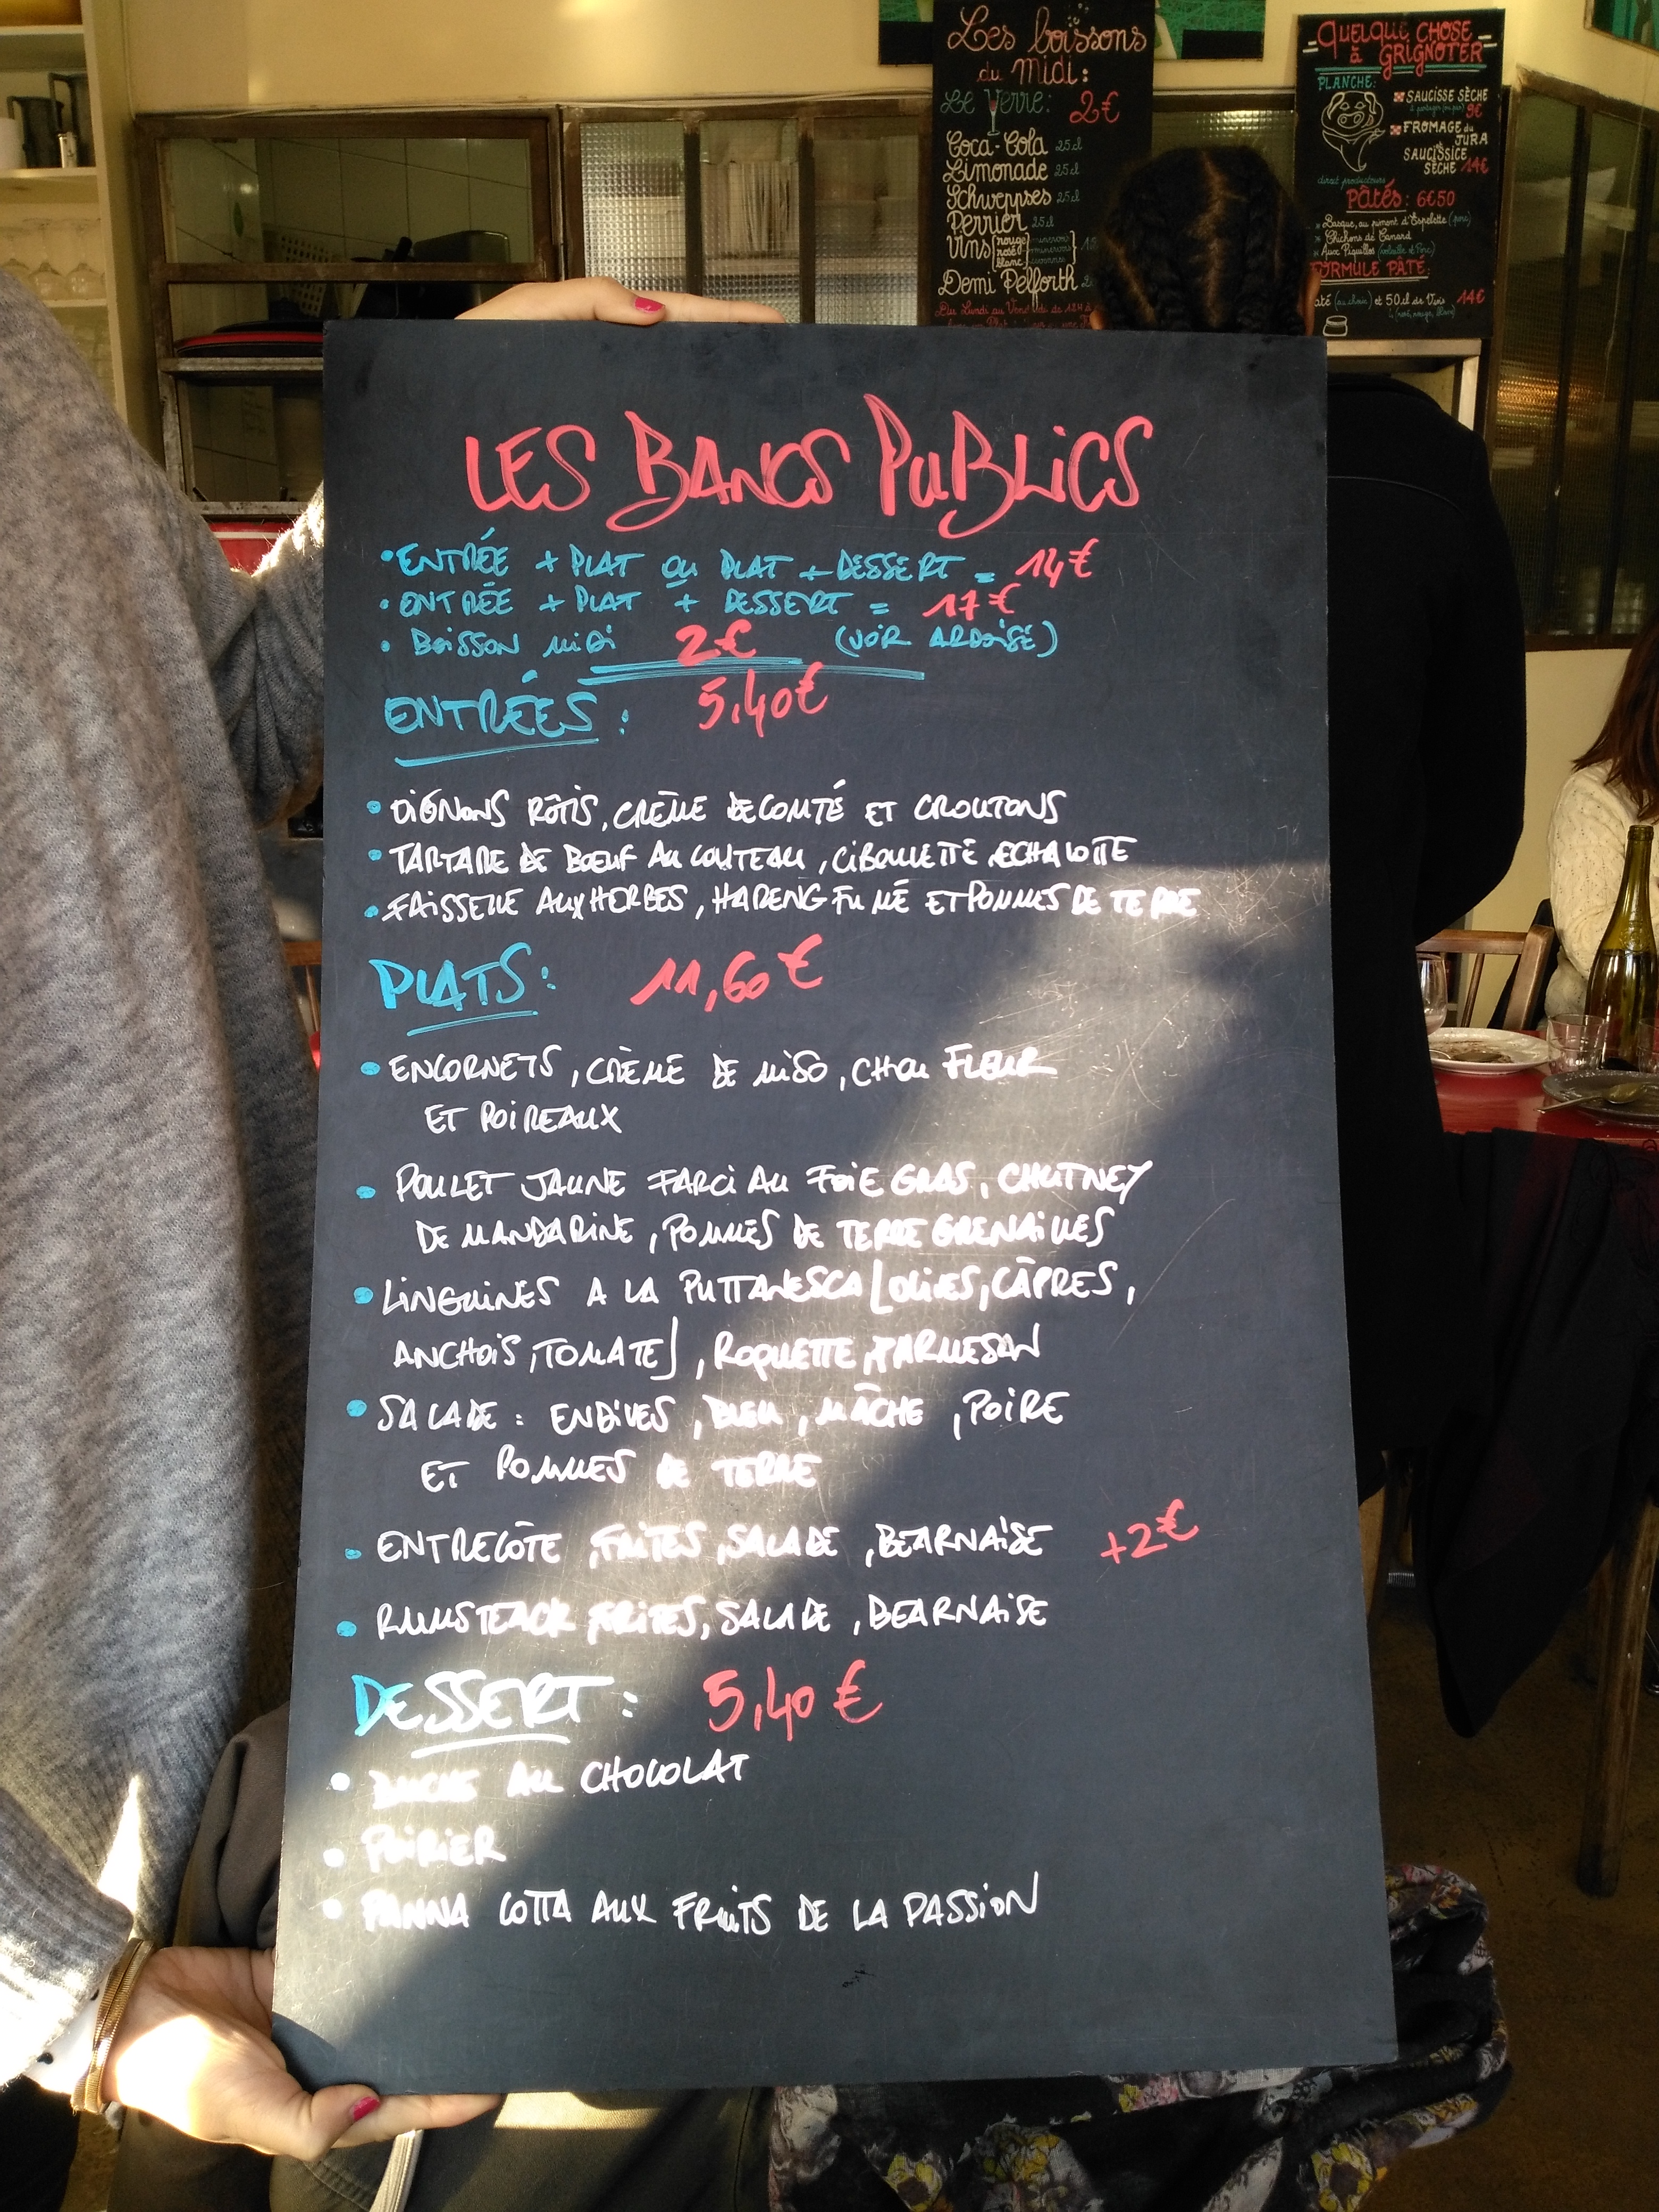 Les boissons
du midi:
Le Verre: 2€
Coca-Cola 25cl
Limonade 25cl
Schweppes 25cl
Perrier 25cl
Vins rouge
rosé
blanc
Demi Pelforth
QUELQUE CHOSE
à GRIGNOTER
PLANCHE:
SAUCISSE SÈCHE
9€
FROMAGE du
JURA
SAUCISSICE
SÈCHE 14€
direct producteurs
Pâtés: 6€50
Basque, au piment d'Espelette (porc)
Chichons de Canard
Aux Piquillos
FORMULE PÂTÉ:
et 50cl de Vin 14€
LES BANCS PUBLICS
• ENTRÉE + PLAT OU PLAT + DESSERT = 14€
• ENTRÉE + PLAT + DESSERT = 17€
• BOISSON MIDI 2€ (VOIR ARDOISE)
ENTRÉES : 5,40€
• OIGNONS RÔTIS, CRÈME DE COMTÉ ET CROUTONS
• TARTARE DE BŒUF AU COUTEAU, CIBOULETTE ECHALOTTE
• FAISSELLE AUX HERBES, HARENG FUMÉ ET POMMES DE TERRE
PLATS : 11,60€
• ENCORNETS, CRÈME DE MISO, CHOU FLEUR
ET POIREAUX
• POULET JAUNE FARCI AU FOIE GRAS, CHUTNEY
DE MANDARINE, POMMES DE TERRE GRENAILLES
• LINGUINES A LA PUTTANESCA [OLIVES, CÂPRES,
ANCHOIS, TOMATE], ROQUETTE, PARMESAN
• SALADE : ENDIVES, BLEU, MÂCHE, POIRE
ET POMMES DE TERRE
• ENTRECÔTE, FRITES, SALADE, BEARNAISE +2€
• RUMSTEACK FRITES, SALADE, BEARNAISE
DESSERT : 5,40€
• BUCHE AU CHOCOLAT
• POIRIER
• PANNA COTTA AUX FRUITS DE LA PASSION